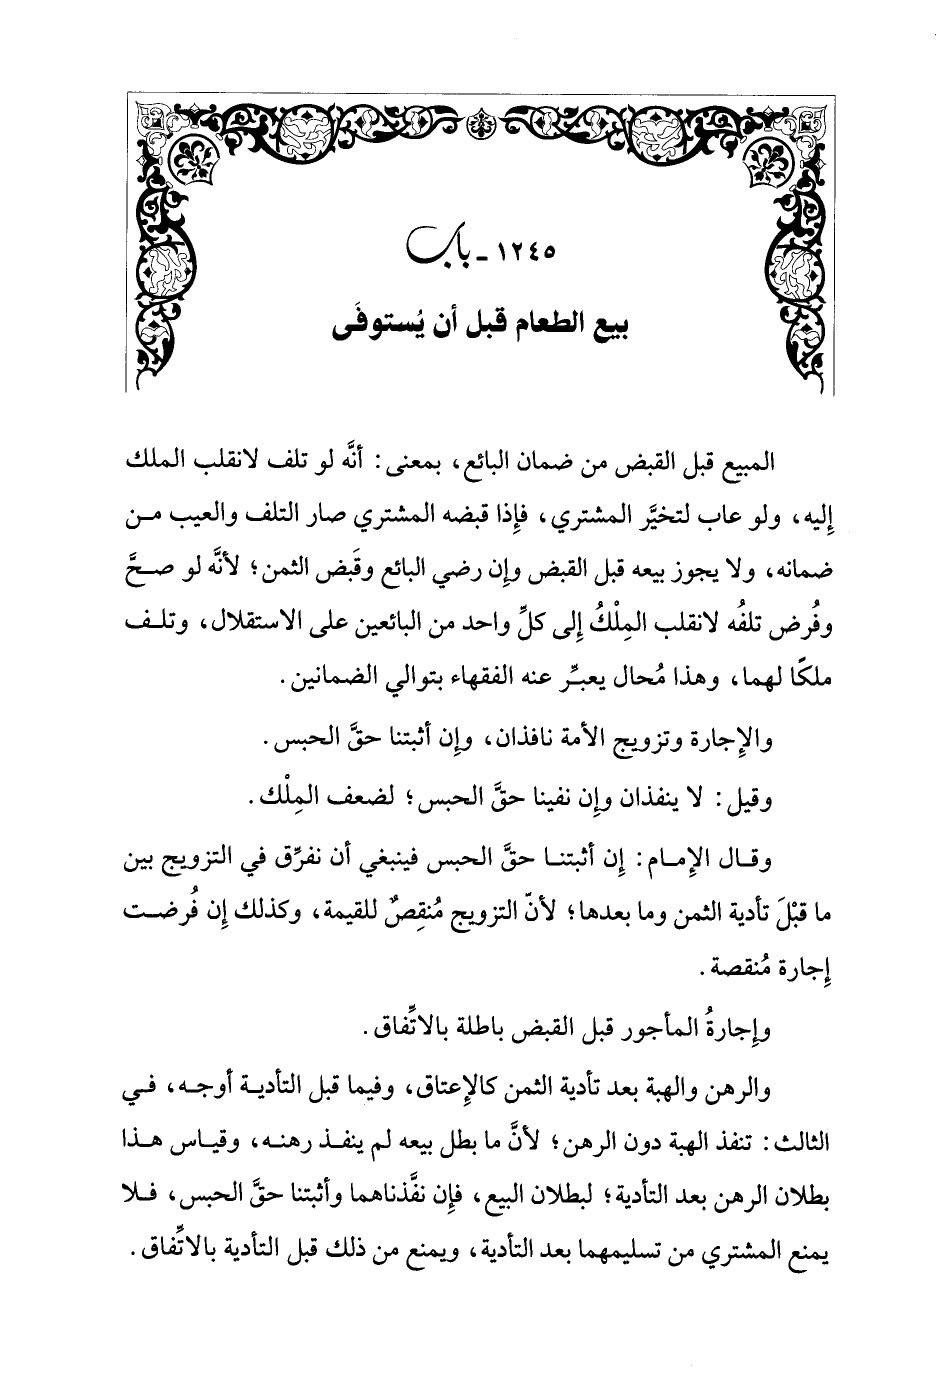 ١٢٤٥ - باب
بيع الطعام قبل أن يُستوفَى
المبيع قبل القبض من ضمان البائع، بمعنى: أنَّه لو تلف لانقلب الملك
إليه، ولو عاب لتخيَّر المشتري، فإذا قبضه المشتري صار التلف والعيب من
ضمانه، ولا يجوز بيعه قبل القبض وإن رضي البائع وقَبض الثمن؛ لأنَّه لو صحَّ
وفُرض تلفُه لانقلب المِلْكُ إلى كلِّ واحد من البائعين على الاستقلال، وتلف
ملكًا لهما، وهذا مُحال يعبِّر عنه الفقهاء بتوالي الضمانين.
والإجارة وتزويج الأمة نافذان، وإن أثبتنا حقَّ الحبس.
وقيل: لا ينفذان وإن نفينا حقَّ الحبس؛ لضعف المِلْك.
وقال الإمام: إن أثبتنا حقَّ الحبس فينبغي أن نفرِّق في التزويج بين
ما قبْلَ تأدية الثمن وما بعدها؛ لأنّ التزويج مُنقِصٌ للقيمة، وكذلك إن فُرضت
إجارة مُنقصة.
وإجارةُ المأجور قبل القبض باطلة بالاتِّفاق.
والرهن والهبة بعد تأدية الثمن كالإعتاق، وفيما قبل التأدية أوجه، في
الثالث: تنفذ الهبة دون الرهن؛ لأنَّ ما بطل بيعه لم ينفذ رهنه، وقياس هذا
بطلان الرهن بعد التأدية؛ لبطلان البيع، فإن نفَّذناهما وأثبتنا حقَّ الحبس، فلا
يمنع المشتري من تسليمهما بعد التأدية، ويمنع من ذلك قبل التأدية بالاتِّفاق.